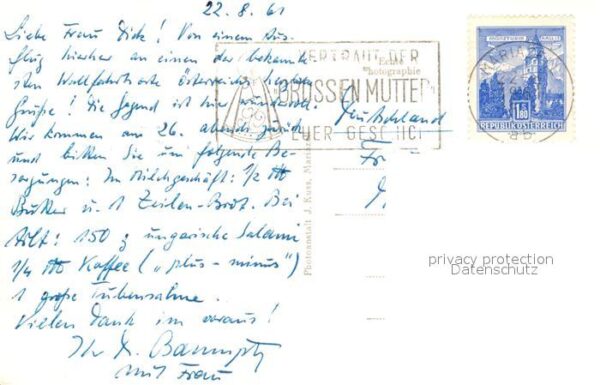 22.8.61
Liebe Frau Dick! Von einem Aus-
flug hierher an einen der bekannte-
sten Wallfahrtsorte Österreichs herzl.
Grüße! Die Gegend ist hier wundervoll.
Wir kommen am 26. abends zurück
und bitten Sie um folgende Be-
sorgungen: Im Milchgeschäft: 1/2 ℔
Butter u. 1 Zeilen-Brot. Bei
150 g ungarische Salami
1/4 ℔ Kaffee („plus-minus")
1 große Tubensahne.
Vielen Dank im voraus!
Ihr
mit Frau
Deutschland
Fr
VERTRAUT DER
GROSSEN MUTTER
EUER GESCHIC
Echte
Photographie
Photoanstalt J. Kuss, Maria
REPUBLIK ÖSTERREICH
1.80
privacy protection
Datenschutz